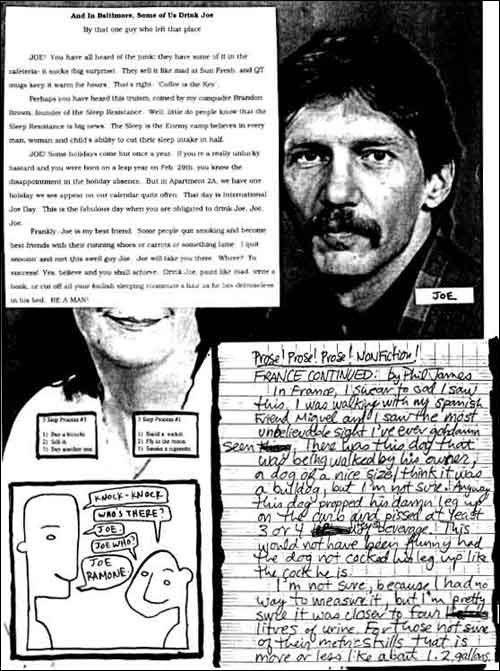 And In Baltimore, Some of Us Drink Joe
By that one guy who left that place
JOE! You have all heard of the junk: they have some of it in the
cafeteria- it sucks (big surprise). They sell it like mad at Sun Fresh, and QT
mugs keep it warm for hours. That's right- 'Coffee is the Key'.
Perhaps you have heard this truism, coined by my compadre Brandon
Brown, founder of the Sleep Resistance. Well, little do people know that the
Sleep Resistance is big news. The Sleep is the Enemy camp believes in every
man, woman and child's ability to cut their sleep intake in half.
JOE! Some holidays come but once a year. If you're a really unlucky
bastard and you were born on a leap year on Feb. 29th, you know the
disappointment in the holiday absence. But in Apartment 2A, we have one
holiday we see appear on our calendar quite often. That day is International
Joe Day. This is the fabulous day when you are obligated to drink Joe, Joe,
Joe.
Frankly, Joe is my best friend. Some people quit smoking and become
best friends with their running shoes or carrots or something lame. I quit
smokin' and met this swell guy Joe. Joe will take you there. Where? To
success! Yes, believe and you shall achieve. Drink Joe, paint like mad, write a
book, or cut off all your foolish sleeping roommate's hair as he lies defenseless
in his bed. BE A MAN!
JOE
3 Step Process #1
1) Buy a bicycle.
2) Sell it.
3) Buy another one.
3 Step Process #2
1) Build a rocket.
2) Fly to the moon.
3) Smoke a cigarette.
KNOCK-KNOCK
WHO'S THERE?
JOE.
JOE WHO?
JOE
RAMONE.
Prose! Prose! Prose! Nonfiction!
FRANCE CONTINUED: by Phil James
In France, I swear to God I saw
this. I was walking with my Spanish
friend Miguel and I saw the most
unbelievable sight I've ever goddamn
seen. There was this dog that
was being walked by his owner,
a dog of a nice size, I think it was
a bulldog, but I'm not sure. Anyway
this dog propped his damn leg up
on the curb and pissed at least
3 or 4 beverage. This
would not have been funny had
the dog not cocked his leg up like
the cock he is.
I'm not sure, because I had no
way to measure it, but I'm pretty
sure it was closer to four
litres of urine. For those not sure
of their metric skills that is
more or less like about 1.2 gallons